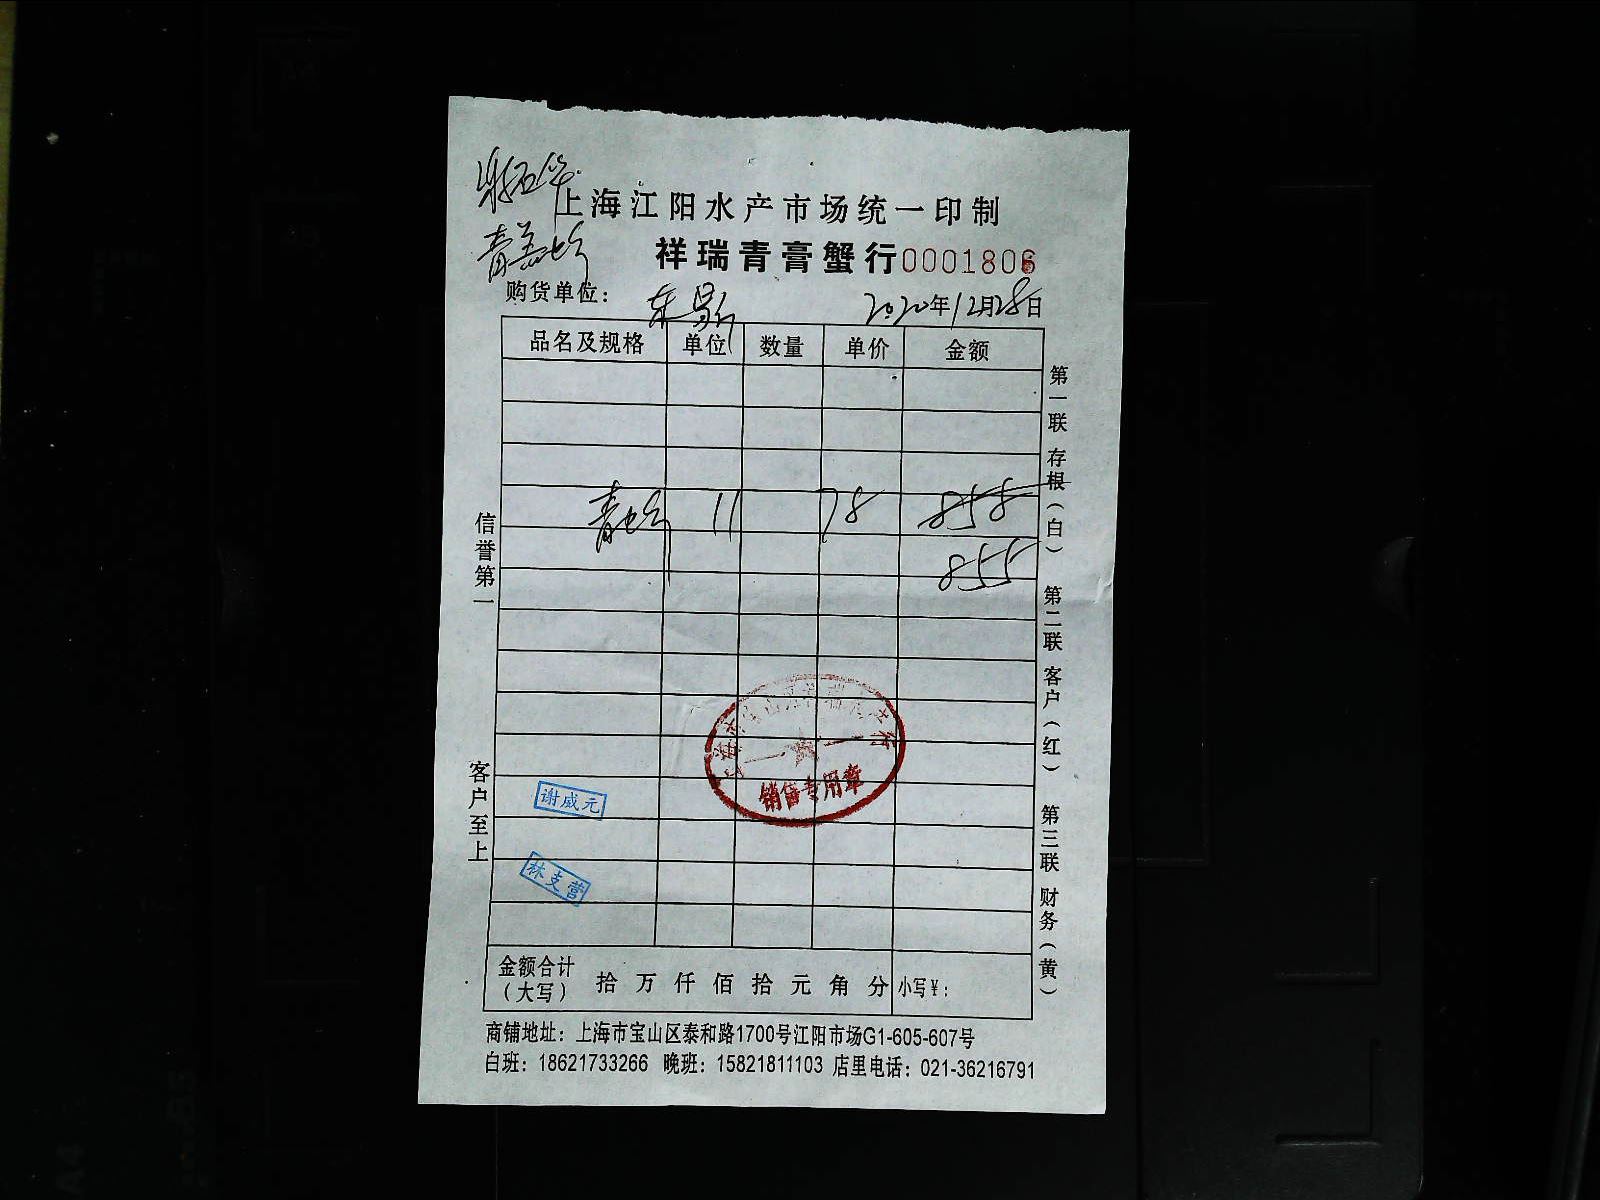 上海江阳水产市场统一印制
祥瑞青膏蟹行 0001806
购货单位： 2020年12月28日
品名及规格 单位 数量 单价 金额
青 11 78 858
855
信誉第一
客户至上
第一联 存根（白） 第二联 客户（红） 第三联 财务（黄）
销售专用章
谢威元
林支营
金额合计（大写） 拾 万 仟 佰 拾 元 角 分 小写¥：
商铺地址：上海市宝山区泰和路1700号江阳市场G1-605-607号
白班：18621733266 晚班：15821811103 店里电话：021-36216791